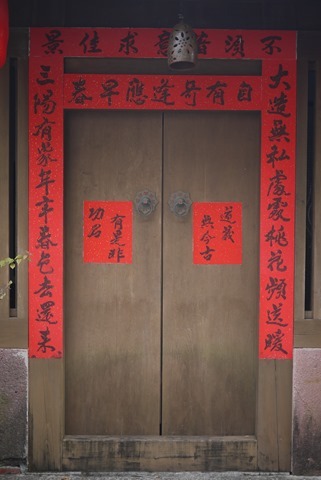 不須著意求佳景
自有奇逢應早春
大造無私處處桃花頻送暖
三陽有象年年春色去還來
道義
無今古
功名
有是非